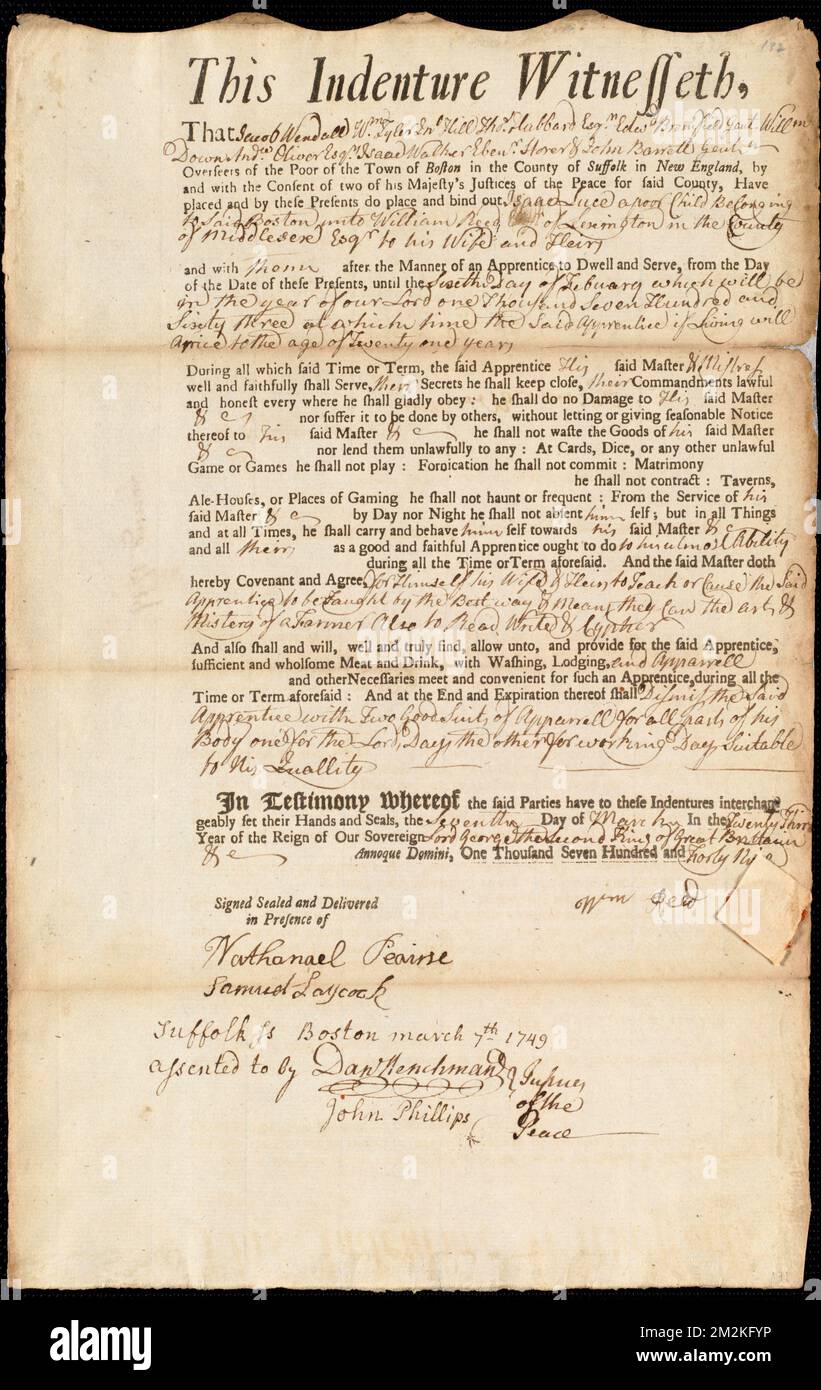 132
This Indenture Witnesseth,
That Jacob Wendall Wm Tyler Jno Hill Thos Hubbard Esqrs Edwd Bromfield Gent Willm
Downe Andw Oliver Esqr Isaac Walker Ebenr Storer & John Barrett Gent
Overseers of the Poor of the Town of Boston in the County of Suffolk in New England, by
and with the Consent of two of his Majesty's Justices of the Peace for said County, Have
placed and by these Presents do place and bind out Isaac Luce a poor Child Belonging
to Said Boston unto William Reed of Lexington in the County
of Middlesex Esqr to his Wife and Heirs
and with them after the Manner of an Apprentice to Dwell and Serve, from the Day
of the Date of these Presents, until the Sixth Day of Febuary which will be
in the year of our Lord one Thousand Seven Hundred and
Sixty three at which time the Said Apprentice if Living will
arive to the age of Twenty one years
During all which said Time or Term, the said Apprentice His said Master & Mistress
well and faithfully shall Serve, their Secrets he shall keep close, their Commandments lawful
and honest every where he shall gladly obey: he shall do no Damage to His said Master
& c nor suffer it to be done by others, without letting or giving seasonable Notice
thereof to his said Master & c he shall not waste the Goods of his said Master
& c nor lend them unlawfully to any: At Cards, Dice, or any other unlawful
Game or Games he shall not play: Fornication he shall not commit: Matrimony
he shall not contract: Taverns,
Ale-Houses, or Places of Gaming he shall not haunt or frequent: From the Service of his
said Master & c by Day nor Night he shall not absent him self; but in all Things
and at all Times, he shall carry and behave him self towards his said Master & c
and all theirs as a good and faithful Apprentice ought to do to his utmost Ability
during all the Time or Term aforesaid. And the said Master doth
hereby Covenant and Agree for Himself his Wife & Heirs to Teach or Cause the Said
Apprentice to be Taught by the Best way & Means they Can the art &
Mistery of a Farmer Also to Read Write & Cypher
And also shall and will, well and truly find, allow unto, and provide for the said Apprentice,
sufficient and wholsome Meat and Drink, with Washing, Lodging, and Apparrell
and other Necessaries meet and convenient for such an Apprentice, during all the
Time or Term aforesaid: And at the End and Expiration thereof shall Dismiss the Said
Apprentice with Two Good Suits of Apparrell for all parts of his
Body one for the Lords Days the other for working Days Suitable
to his Quallity
In Testimony Whereof the said Parties have to these Indentures interchan
geably set their Hands and Seals, the Seventh Day of March In the Twenty Third
Year of the Reign of Our Sovereign Lord George the Second King of Great Brittain
& c Annoque Domini, One Thousand Seven Hundred and Forty Nine
Signed Sealed and Delivered
in Presence of
Wm Reed
Nathanael Peairse
Samuel Laycock
Suffolk ss Boston march 7th 1749
assented to by Danl Henchman
John Phillips
Justices
of the
Peace
alamy
Image ID: 2M2KFYP
www.alamy.com